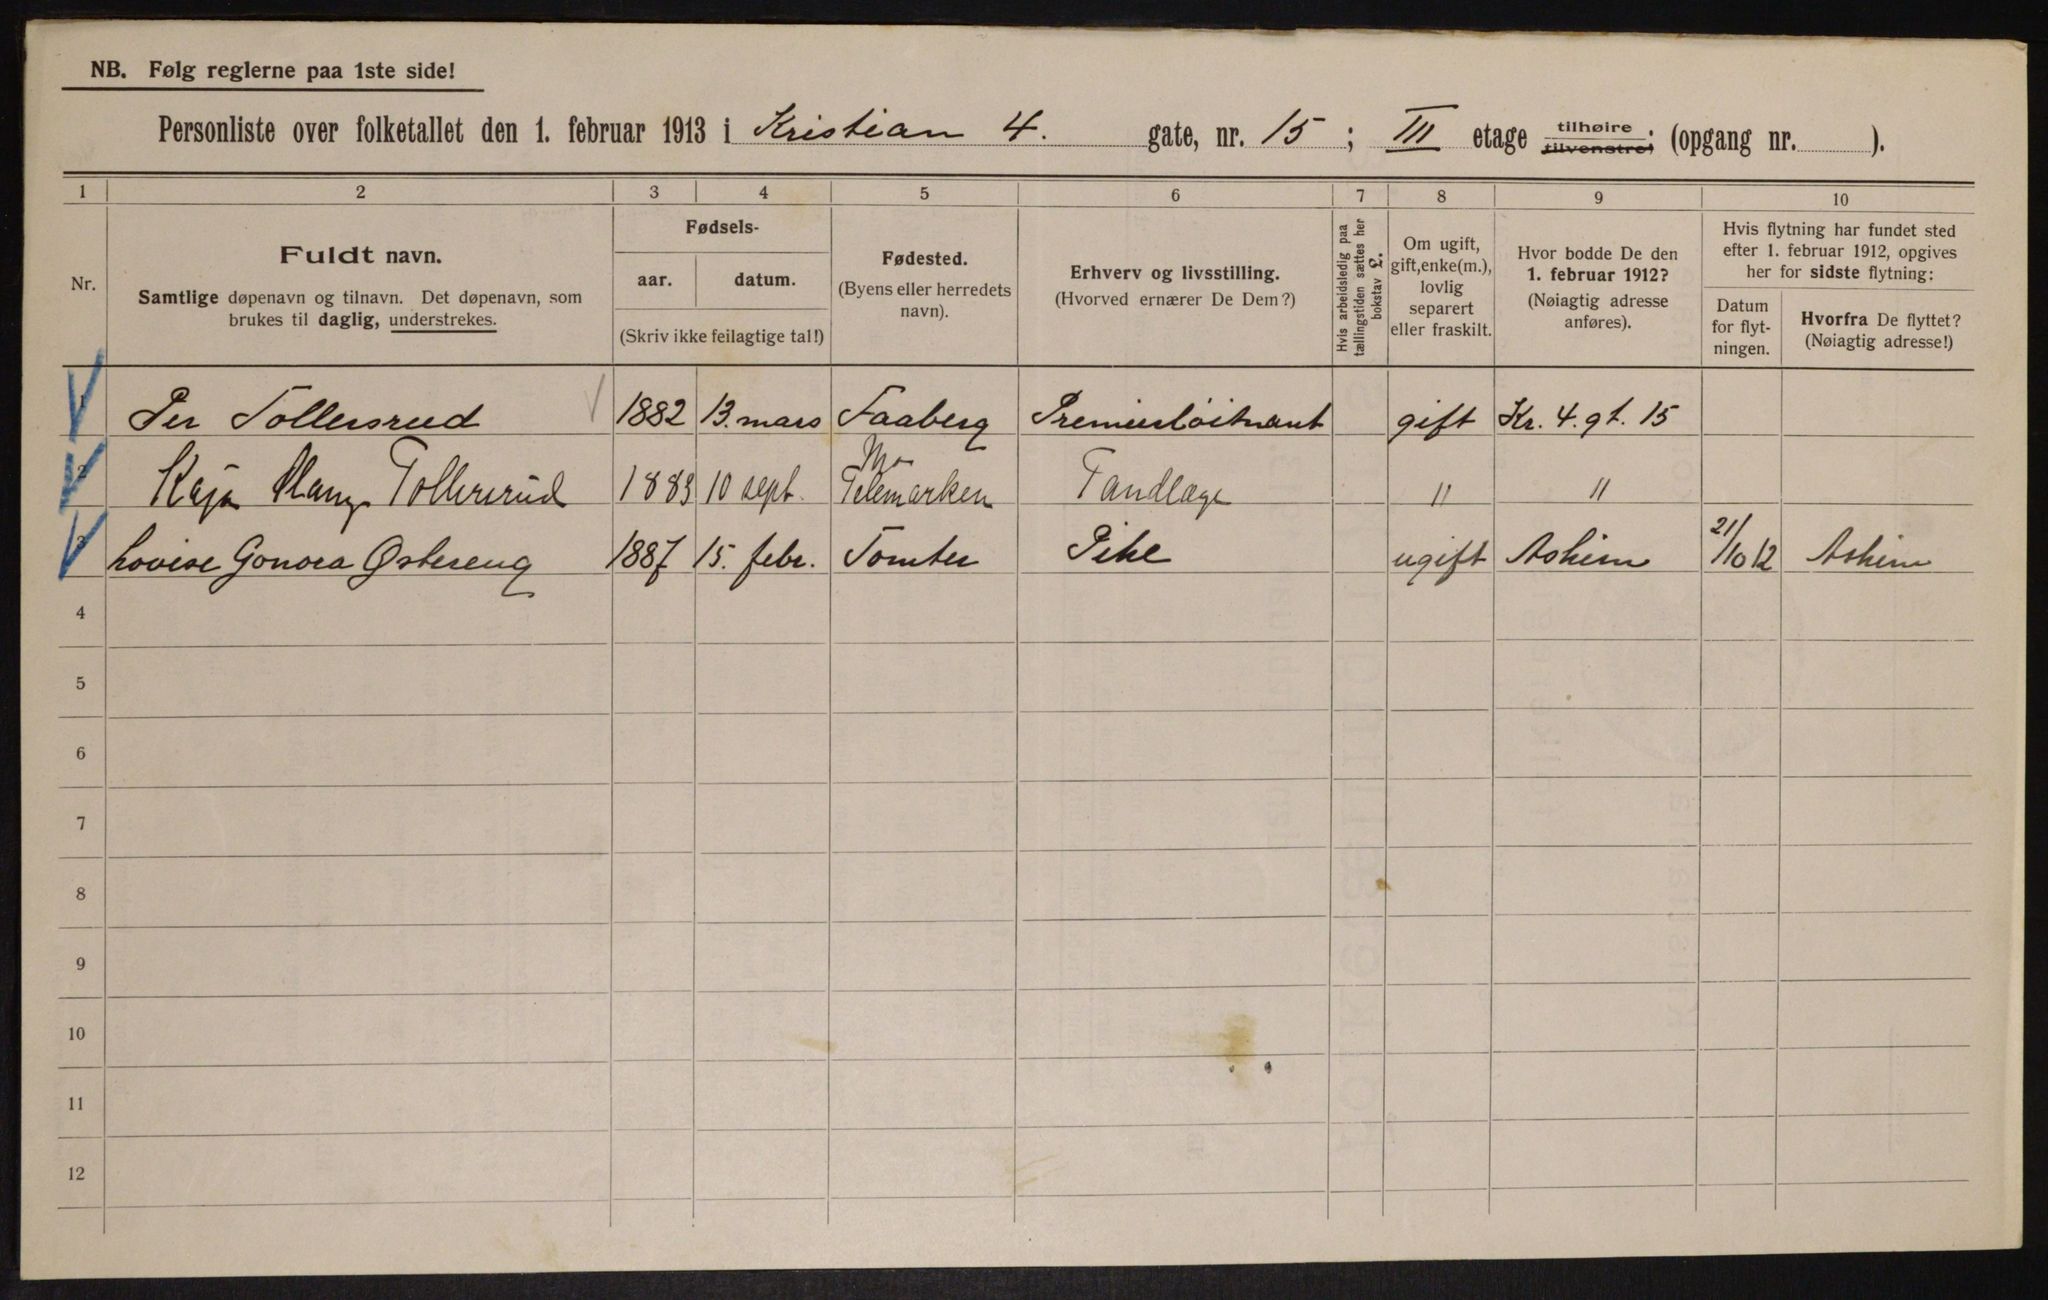 NB. Følg reglerne paa 1ste side!
Personliste over folketallet den 1. februar 1913 i Kristian 4. gate, nr. 15; III etage tilhøire tilvenstre; (opgang nr. ).
1 2 3 4 5 6 7 8 9 10
Nr.
Fuldt navn.
Samtlige døpenavn og tilnavn. Det døpenavn, som
brukes til daglig, understrekes.
Fødsels-
aar. datum.
(Skriv ikke feilagtige tal!)
Fødested.
(Byens eller herredets
navn).
Erhverv og livsstilling.
(Hvorved ernærer De Dem?)
Hvis arbeidsledig paa
tællingstiden sættes her
bokstav L.
Om ugift,
gift, enke(m.),
lovlig
separert
eller fraskilt.
Hvor bodde De den
1. februar 1912?
(Nøiagtig adresse
anføres).
Hvis flytning har fundet sted
efter 1. februar 1912, opgives
her for sidste flytning:
Datum
for flyt-
ningen.
Hvorfra De flyttet?
(Nøiagtig adresse!)
1 Per Tollersrud 1882 13. mars Faaberg Premierløitnant gift Kr. 4. gt. 15
2 Kaja Tollersrud 1883 10 sept. Mo Telemarken Tandlæge " "
3 Lovise Gonora Østereng 1887 15. febr. Tomter Pike ugift Askim 21/10 12 Askim
4
5
6
7
8
9
10
11
12